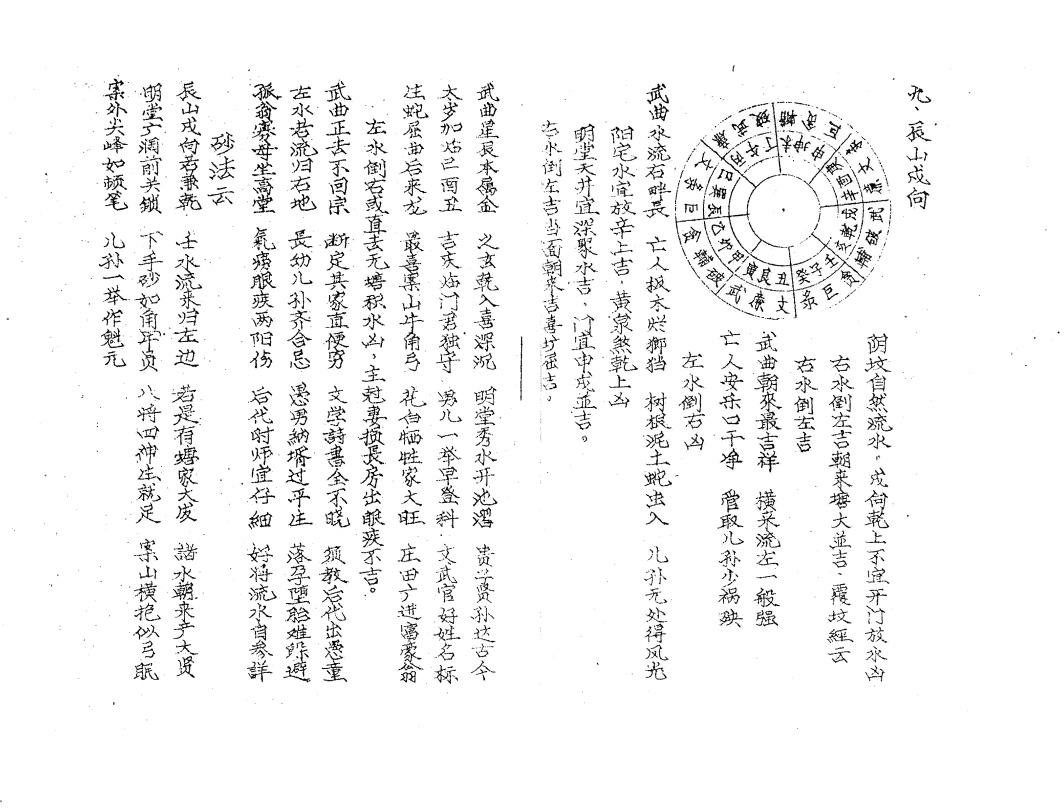 九、辰山戍向
阴坟自然流水。戍向乾上不宜开门放水凶
右水倒左吉朝来塘大並吉．覆坟經云
右水倒左吉
武曲朝來最吉祥 横来流左一般强
亡人安乐口干净 管取儿孙少祸殃
左水倒右凶
武曲水流右畔長 亡人板木烂鄉鐺 树根泥土蛇虫入 儿孙无处得风光
阳宅水宜放辛上吉．黄泉煞乾上凶
明堂天井宜深聚水吉．门宜申戍並吉。
右水倒左吉当面朝来吉喜
武曲星辰本属金 之玄乾入喜深沉 明堂秀水开池溜 贵子贤孙达古今
太岁加临巳酉丑 吉庆临门君独守 男儿一举早登科 文武官好姓名标
注蛇屈曲后来龙 最喜案山牛角弓 花白牺牲家大旺 庄田广进富豪翁
左水倒右或直去无塘积水凶，主剋妻损長房出眼疾不吉。
武曲正去不回宗 断定其家直便穷 文学詩書全不晓 须教后代出愚童
左水若流归右地 長幼儿孙齐合忌 愚男納壻过平生 落孕墮胎难躲避
孤翁寡母坐高堂 氣痨眼疾两阳伤 后代时师宜仔細 好将流水自參詳
砂法云
辰山戍向若兼乾 壬水流来归左边 若是有塘家大发 諸水朝来产大贤
明堂广濶前关鎖 下手砂如角平员 八將四神生就足 案山横抱似弓眠
案外尖峰如顿笔 儿孙一举作魁元